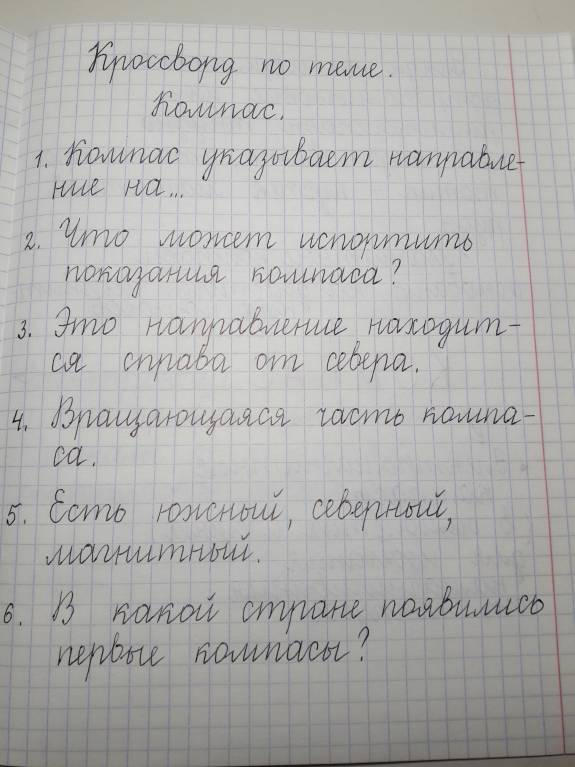 Кроссворд по теме.
Компас.
1. Компас указывает направле-
ние на...
2. Что может испортить
показания компаса?
3. Это направление находит-
ся справа от севера.
4. Вращающаяся часть компа-
са.
5. Есть южный, северный,
магнитный.
6. В какой стране появились
первые компасы?